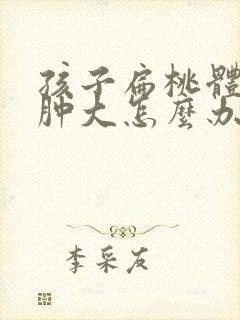 孩子扁桃體
肿大怎麼办
李采友